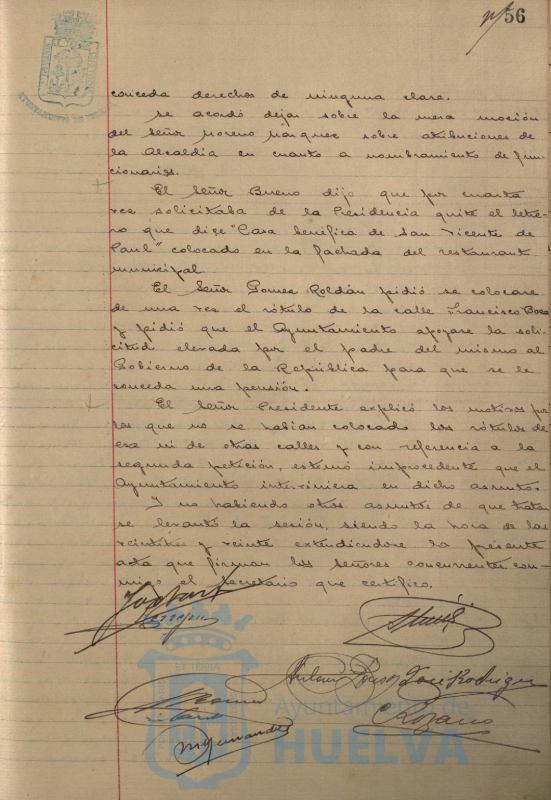 56
conceda derechos de ninguna clase.
Se acordó dejar sobre la mesa moción
del Señor Moreno Márquez sobre atribuciones de
la Alcaldía en cuanto a nombramiento de fun-
cionarios.
El Señor Bueno dijo que por cuarta
vez solicitaba de la Presidencia quite el letre-
ro que dice "Casa benéfica de San Vicente de
Paul" colocado en la fachada del restaurant
municipal
El Señor Gomez Roldán pidió se colocase
de una vez el rótulo de la calle Francisco Boza
y pidió que el Ayuntamiento apoyase la soli-
citud elevada por el padre del mismo al
Gobierno de la República para que se le
conceda una pensión.
El Señor Presidente explicó los motivos por
los que no se habían colocado los rótulos de
esa ni de otras calles y con referencia a la
segunda petición, estimó improcedente que el
Ayuntamiento interviniera en dicho asunto.
Y no habiendo otros asuntos de que tratar
se levantó la sesión, siendo la hora de las
y veinte extendiendose la presente
acta que firman los señores concurrentes con-
migo el Secretario que certifico.
José Rodriguez
Ayuntamiento de
HUELVA